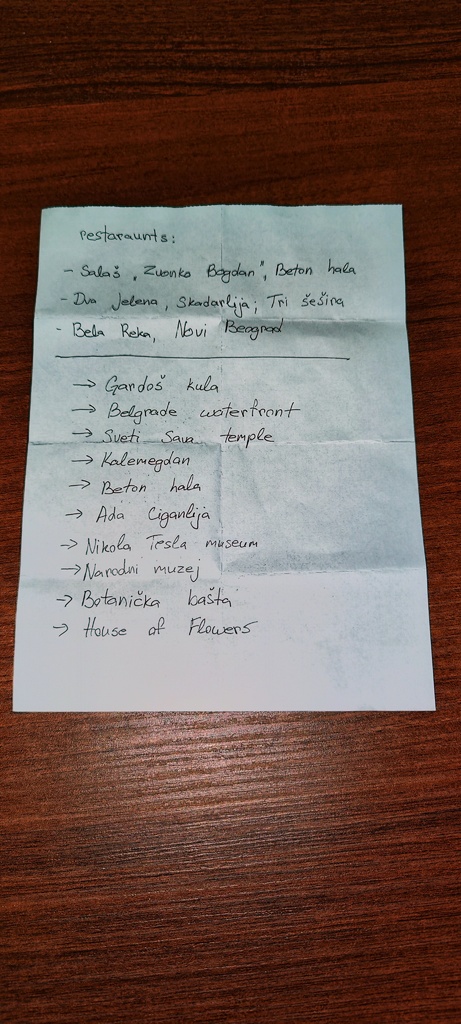 restaraunts:
- Salaš „Zvonko Bogdan", Beton hala
- Dva jelena, Skadarlija; Tri šešira
- Bela Reka, Novi Beograd
→ Gardoš kula
→ Belgrade waterfront
→ Sveti Sava temple
→ Kalemegdan
→ Beton hala
→ Ada Ciganlija
→ Nikola Tesla museum
→ Narodni muzej
→ Botanička bašta
→ House of Flowers